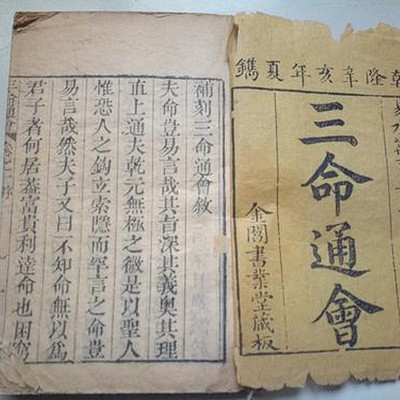 乾隆辛亥年夏鐫
三命通會
金閶書業堂藏板
補刻三命通會敘
夫命豈易言哉其旨深其義奧其理
直上通夫乾元無極之微是以聖人
惟恐人之鉤立索隱而罕言之命豈
易言哉然夫子又曰不知命無以爲
君子者何居蓋富貴利達命也困窮